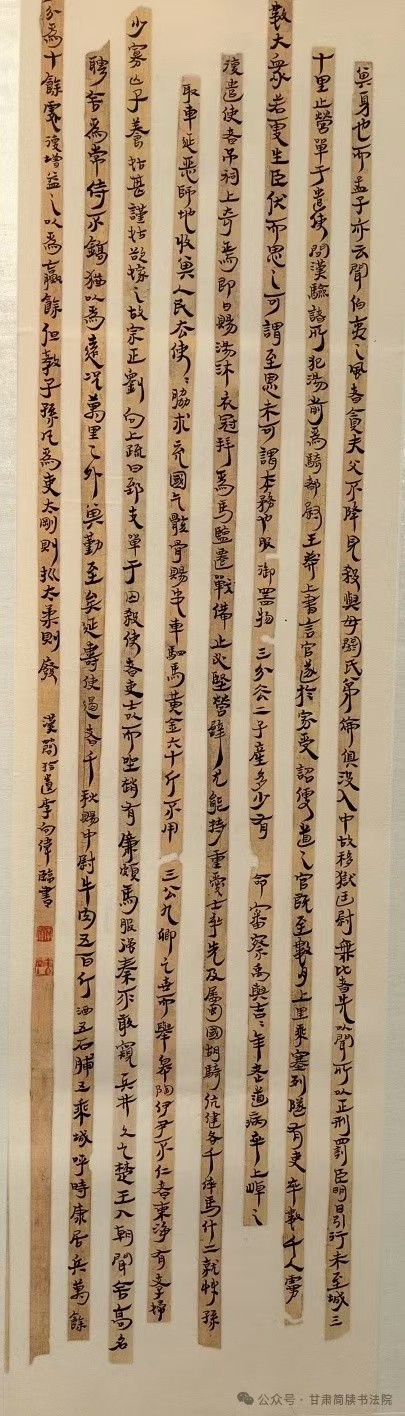 真身也而孟子亦云聞伯夷之風者貪夫父不降見殺與母閼氏弟倫俱沒入中故移獄廷尉無比者先以聞所以正刑罰臣明日引行未至城三
十里止營單于遣使問漢驗諸所犯湯前為騎都尉王莽上書言官遂於家受詔儒道之官既至數月上里乘塞列隧有吏卒數千人虜
數大眾若更生臣伏而思之可謂至恩未可謂本務也服御器物三分公二子產多少有命審察焉與吉二年老道病卒上悼之
復遣使者弔祠上奇焉即日賜湯沐衣冠拜焉馬監還戰備止必堅營辟尤能持重愛士爭先及屬國胡騎伉健各千倅馬什二就悼孫
取車延惡師地收其人民去使二脅求充國乞骸骨賜安車駟馬黃金六十斤不用三公九卿之吉而舉皋陶伊尹不仁者東海有孝婦
少寡亡子養姑甚謹姑欲嫁之故宗正劉向上疏曰郅支單于囚殺使者吏士以而坐趙有廉頗馬服彊秦不敢窺兵井久之楚王入朝聞舍高名
聘舍為常侍不鎬猶以為遠況萬里之外其勤至矣延壽使過者千秋賜中尉牛肉五百斤酒五石脯五乘城呼時康居兵萬餘
分為十餘處復增益之以為贏餘但教子孫凡為吏太剛則折太柔則廢
漢簡拾遺李向偉臨書
公众号·甘肃简牍书法院